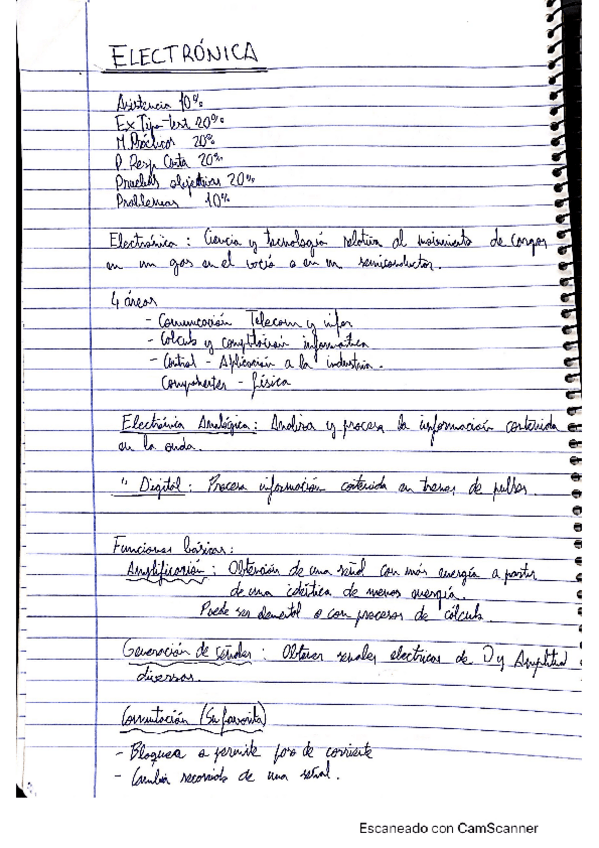 ELECTRÓNICA
Asistencia 10%
Ex Tipo-test 20%
M. Prácticos 20%
P. Resp Corta 20%
Pruebas objetivas 20%
Problemas 10%
Electrónica : Ciencia y tecnología relativa al movimiento de cargas
en un gas en el vacío o en un semiconductor.
4 áreas
- Comunicación Telecom y infor
- Cálculo y computación informática
- Control - Aplicación a la industria.
Componentes - física
Electrónica Analógica : Analiza y procesa la información contenida
en la onda.
" Digital : Procesa información contenida en trenes de pulsos.
Funciones básicas :
Amplificación : Obtención de una señal con más energía a partir
de una idéntica de menos energía.
Puede ser elemental o con procesos de cálculo.
Generación de señales : Obtener señales electricas de y Amplitud
diversas.
Conmutación (Su favorita)
- Bloquea o permite paso de corriente
- Cambia recorrido de una señal.
Escaneado con CamScanner